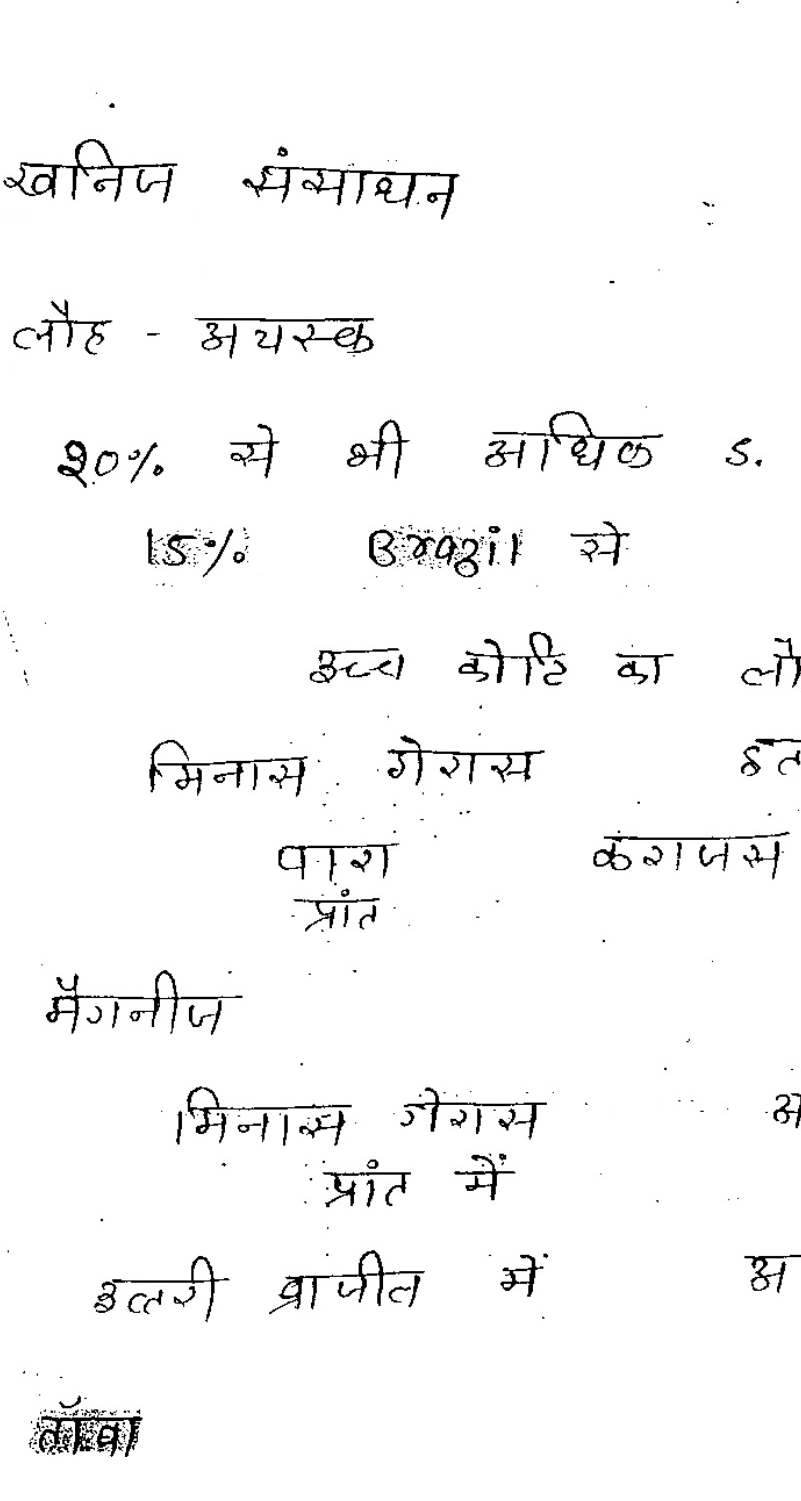 खनिज संसाधन
लौह - अयस्क
20% से भी अधिक S.
15% Brazil से
उच्च कोटि का लौ
मिनास गेरास इत
पारा कराजस
प्रांत
मैगनीज
मिनास गेरास अ
प्रांत में
उत्तरी ब्राजील में अ
ताँबा